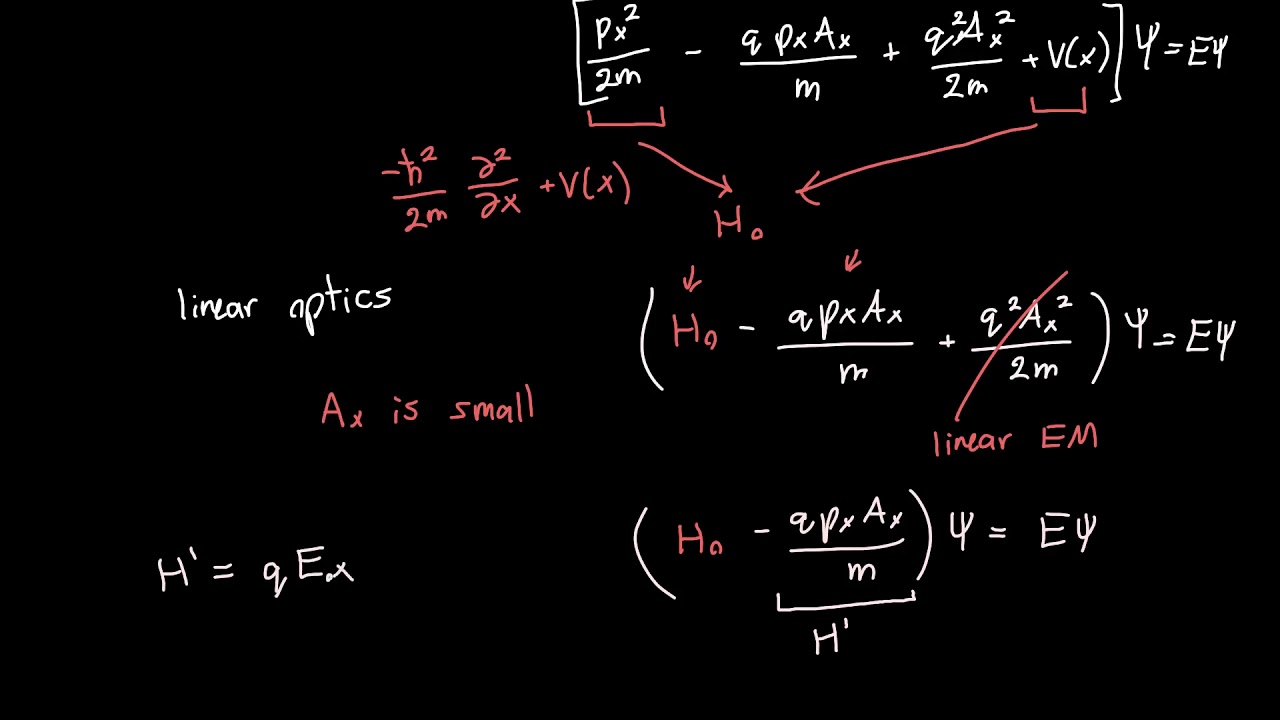 [px²/2m - q px Ax/m + q²Ax²/2m + V(x)] Ψ = EΨ
-ħ²/2m ∂²/∂x + V(x)
H₀
linear optics
(H₀ - q px Ax/m + q²Ax²/2m) Ψ = EΨ
Ax is small
linear EM
(H₀ - q px Ax/m) Ψ = EΨ
H' = qE.x
H'